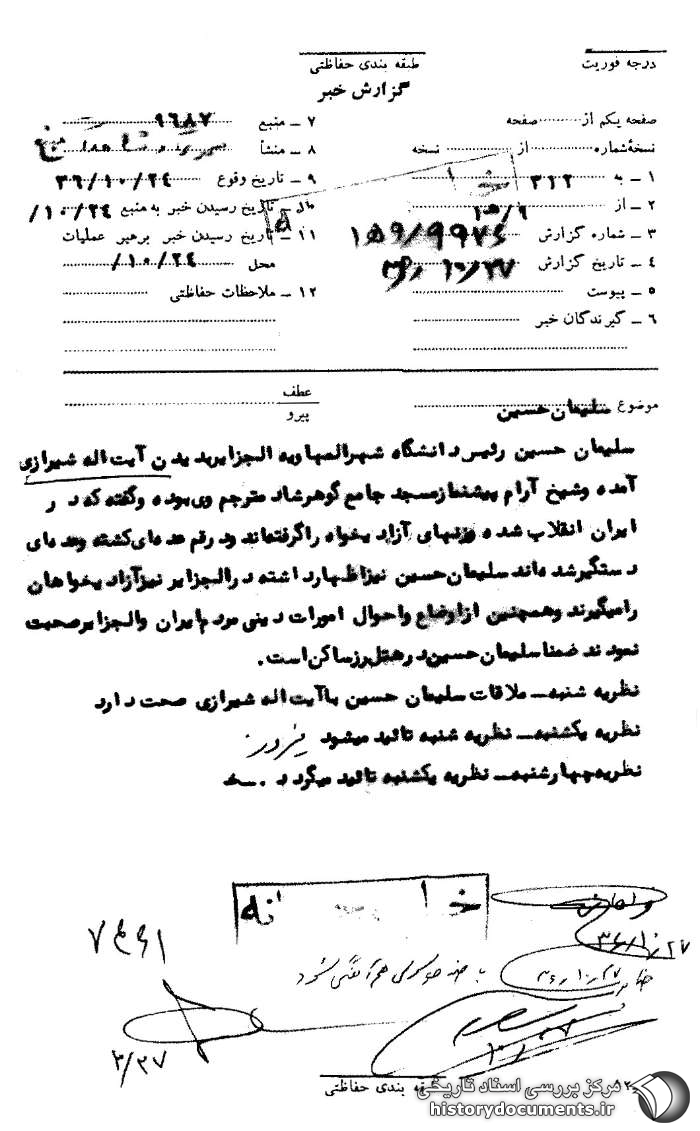 درجه فوریت
طبقه بندی حفاظتی
گزارش خبر
صفحه یکم از صفحه
نسخهٔ شماره از نسخه
۱ ـ به ۳۱۲
۲ ـ از
۳ ـ شماره گزارش
۴ ـ تاریخ گزارش
۵ ـ پیوست
۶ ـ گیرندگان خبر
۷ ـ منبع ۹۶۸۷
۸ ـ منشأ
۹ ـ تاریخ وقوع ۳۶/۱۰/۲۴
۱۰ـ تاریخ رسیدن خبر به منبع ۱۰/۲۴/
۱۱ ـ تاریخ رسیدن خبر برهبر عملیات
محل ۱۰/۲۴/
۱۲ ـ ملاحظات حفاظتی
موضوع سلیمان حسین
عطف
پیرو
سلیمان حسین رئیس دانشگاه شهر المهاویه الجزایر بدیدن آیت اله شیرازی
آمده وشیخ آرام پیشنماز مسجد جامع گوهرشاد مترجم وی بوده وگفته که در
ایران انقلاب شده وزنهای آزادیخواه راگرفته‌اند ودر قم عده‌ای کشته وعده‌ای
دستگیر شده‌اند سلیمان حسین نیز اظهار داشته در الجزایر نیز آزادیخواهان
را میگیرند وهمچنین از اوضاع واحوال امورات دینی مردم ایران والجزایر صحبت
نمودند ضمنا سلیمان حسین در هتل برز ساکن است.
نظریه شنبه ـ ملاقات سلیمان حسین با آیت اله شیرازی صحت دارد
نظریه یکشنبه ـ نظریه شنبه تائید میشود
نظریه چهارشنبه ـ نظریه یکشنبه تائید میگردد.
۳۶/۱۰/۲۷
۳۶/۱۰/۲۷
طبقه بندی حفاظتی
مرکز بررسی اسناد تاریخی
historydocuments.ir